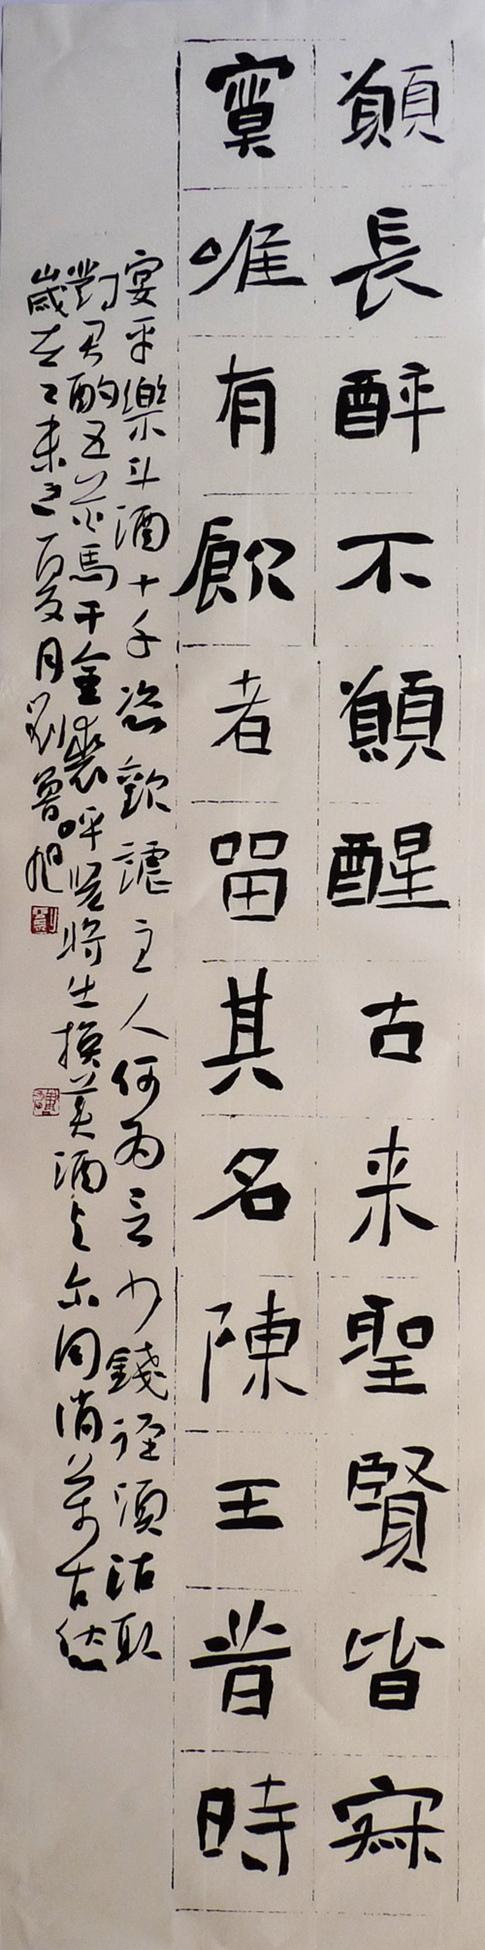 願長醉不願醒古来聖賢皆寂
寞唯有飲者留其名陳王昔時
宴平樂斗酒十千恣歡謔主人何為言少錢徑須沽取
對君酌五花馬千金裘呼兒將出換美酒与尔同消萬古愁
歲在乙未之夏月劉魯旭